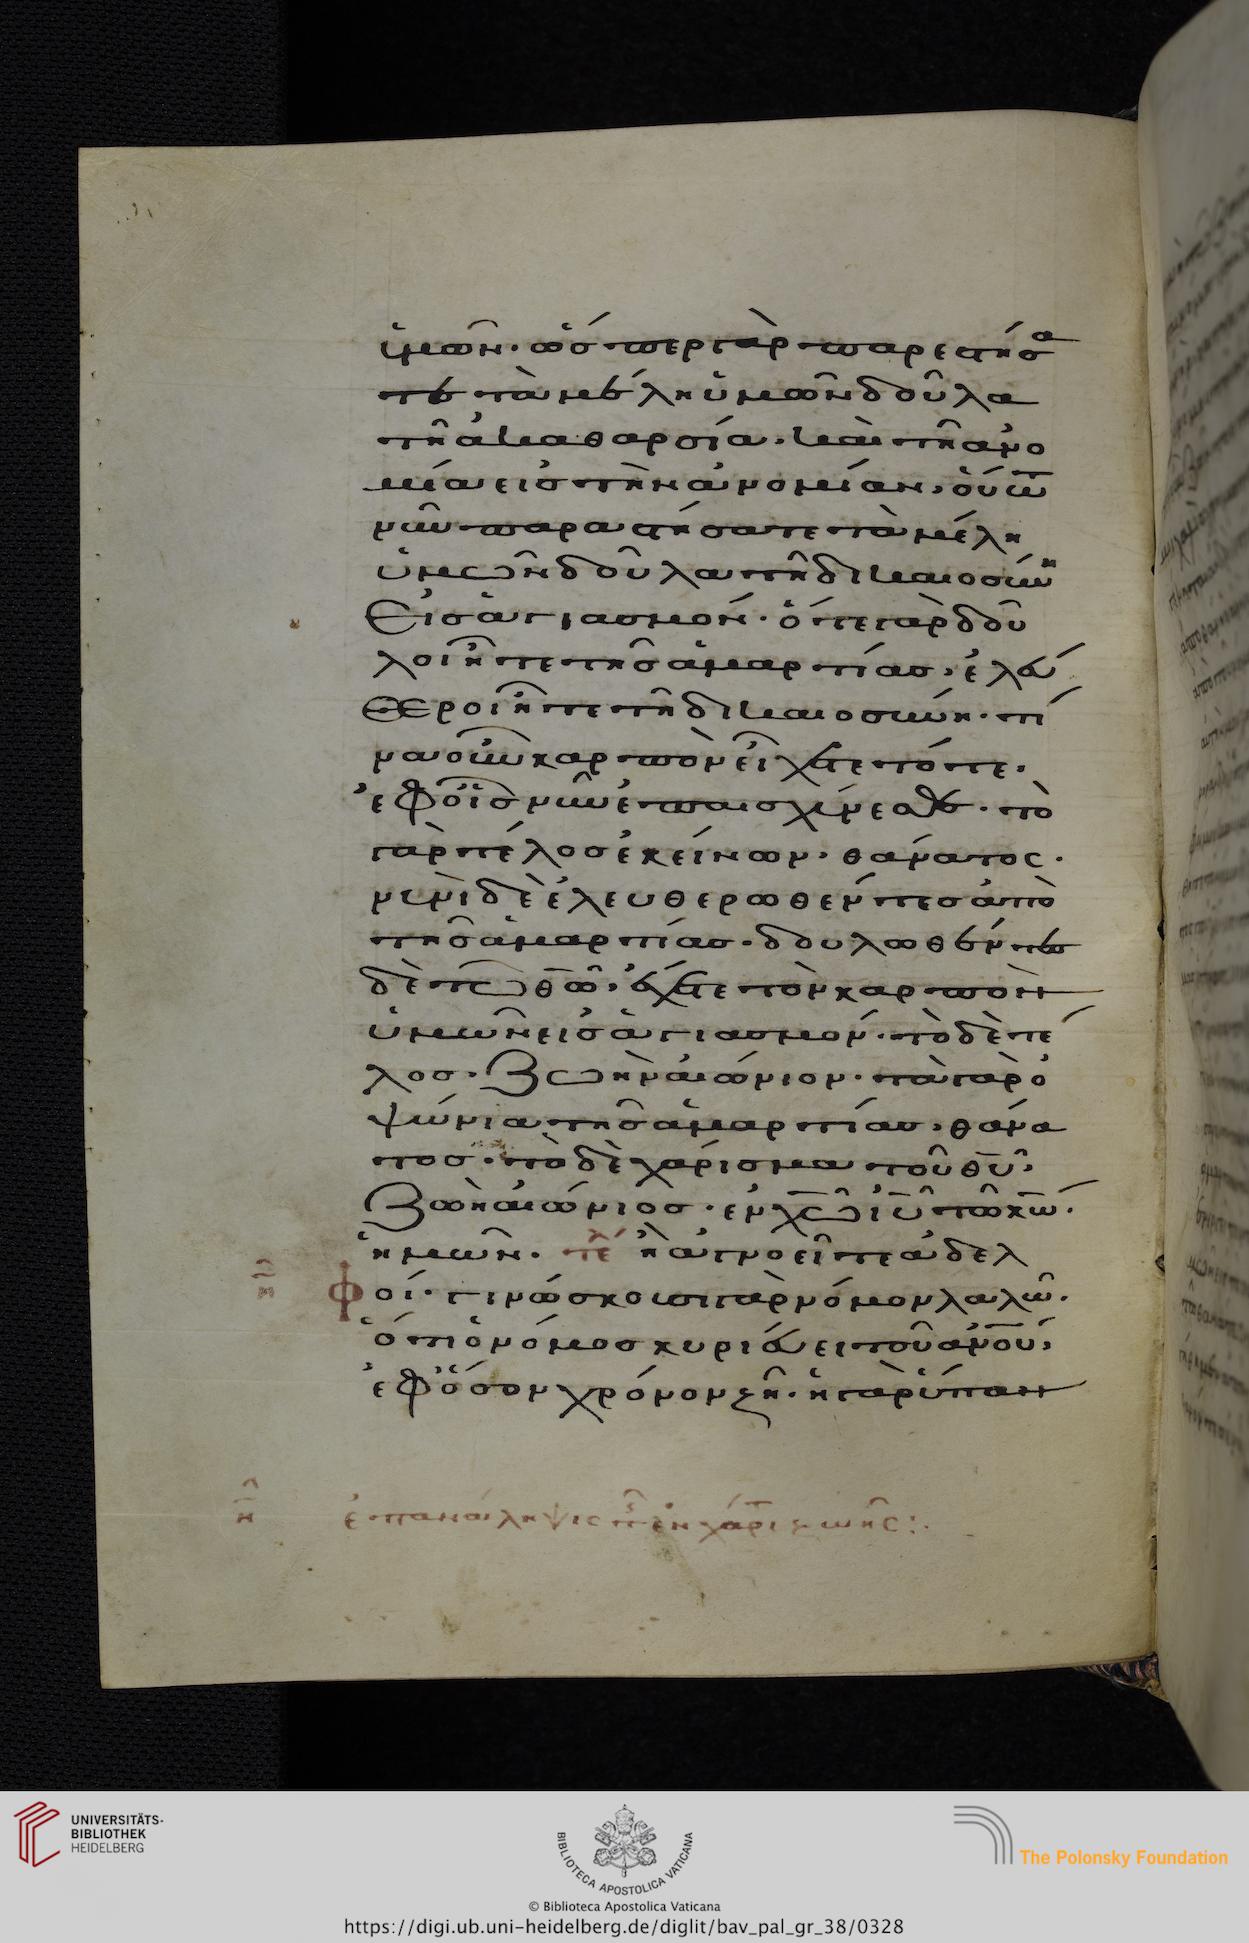 ὑμῶν· ὥσπερ γὰρ παρεστήσα
τε τὰ μέλη ὑμῶν δοῦλα
τῆ ἀκαθαρσία· καὶ τῆ ἀνο
μία εἰς τὴν ἀνομίαν, οὕτω
νῦν παραστήσατε τὰ μέλη
ὑμῶν δοῦλα τῆ δικαιοσύνη
εἰς ἁγιασμόν· ὅτε γὰρ δοῦ
λοι ἦτε τῆς ἁμαρτίας, ἐλεύ
θεροι ἦτε τῆ δικαιοσύνη· τί
να οὖν καρπὸν εἴχετε τότε,
ἐφ οἷς νῦν ἐπαισχύνεσθε· τὸ
γὰρ τέλος ἐκείνων, θάνατος·
νυνὶ δὲ ἐλευθερωθέντες ἀπὸ
τῆς ἁμαρτίας· δουλωθέντες
δὲ τῶ θ̅ω̅, ἔχετε τὸν καρπὸν
ὑμῶν εἰς ἁγιασμόν· τὸ δὲ τέ
λος, ζωὴν αἰώνιον· τὰ γὰρ ὀ
ψώνια τῆς ἁμαρτίας, θάνα
τος· τὸ δὲ χάρισμα τοῦ θ̅υ̅,
ζωὴ αἰώνιος· ἐν χ̅ω̅ ι̅υ̅ τῶ κ̅ω̅
ἡμῶν. τέ ἢ ἀγνοεῖτε ἀδελ
φοί· γινώσκουσι γὰρ νόμον λαλῶ·
ὅτι ὁ νόμος κυριεύει τοῦ α̅ν̅ου,
ἐφ ὅσον χρόνον ζῆ· ἡ γὰρ ὕπαν
η ἐπανάληψις π ἐν χάρι ζωῆς:
UNIVERSITÄTS-
BIBLIOTHEK
HEIDELBERG
BIBLIOTECA APOSTOLICA VATICANA
The Polonsky Foundation
© Biblioteca Apostolica Vaticana
https://digi.ub.uni-heidelberg.de/diglit/bav_pal_gr_38/0328